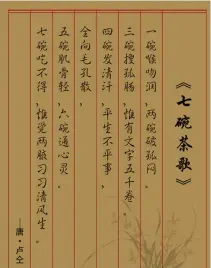 《七碗茶歌》
一碗喉吻润,两碗破孤闷。
三碗搜孤肠,惟有文字五千卷。
四碗发清汗,平生不平事,
全向毛孔散,
五碗肌骨轻,六碗通心灵。
七碗吃不得,惟觉两胶习习清风生。
——唐·卢仝